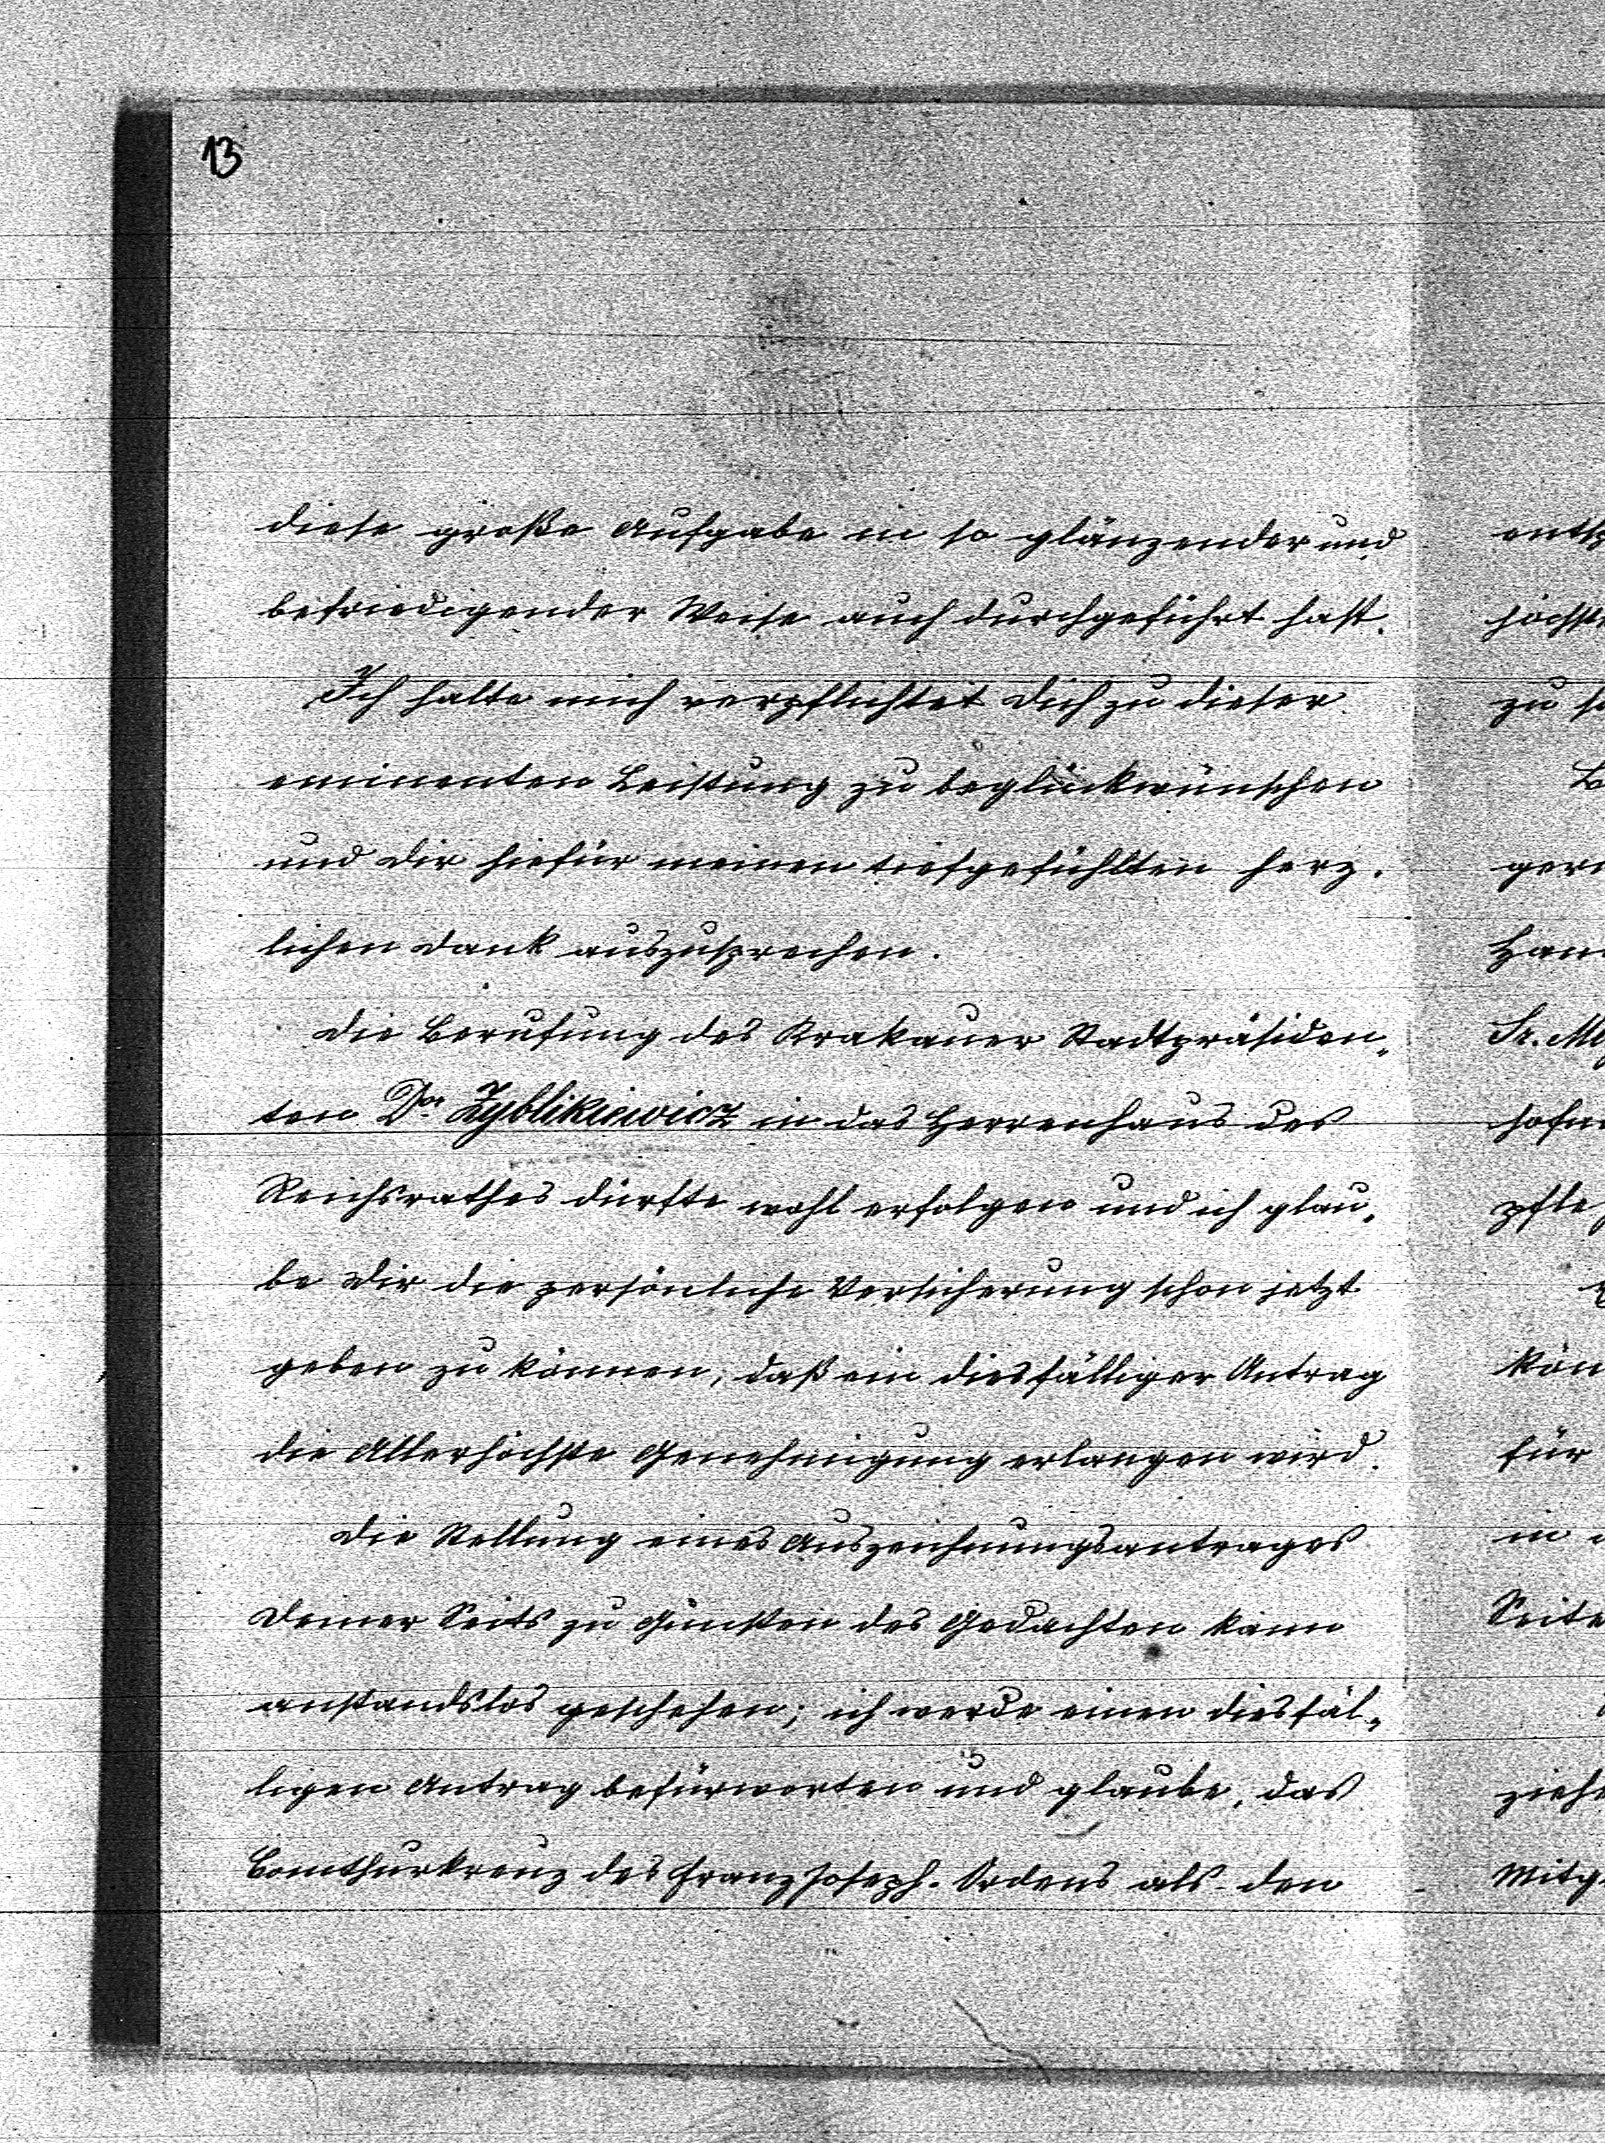 13
diese große Aufgabe in so glänzender und
befriedigender Weise auch durchgeführt hast.
Ich halte mich verpflichtet Dich zu dieser
eminenten Leistung zu beglückwünschen
und Dir hiefür meinen tiefgefühlten herz-
lichen Dank auszusprechen.
Die Berufung des Krakauer Stadtpräsiden-
ten Dr Zyblikiewicz in das Herrenhaus des
Reichsrathes dürfte wohl erfolgen und ich glau-
be Dir die persönliche Versicherung schon jetzt
geben zu können, daß ein diesfälliger Antrag
die Allerhöchste Genehmigung erlangen wird.
Die Stellung eines Auszeichnungsantrages
Deiner Seits zu Gunsten des Gedachten kann
anstandslos geschehen; ich werde einen diesfäl-
ligen Antrag befürworten und glaube, das
Comthurkreuz des Franz Joseph-Ordens als den